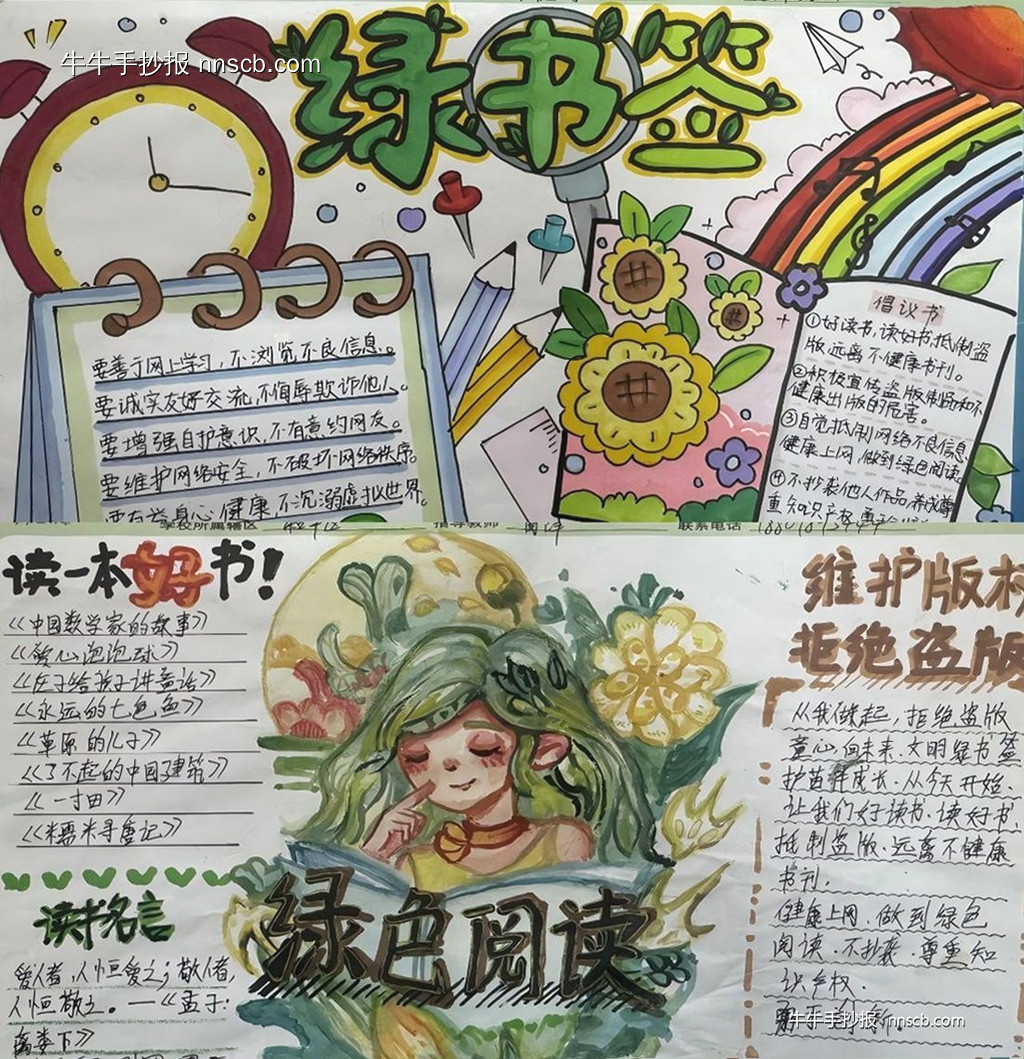 牛牛手抄报 nnscb.com
绿书签
要善于网上学习,不浏览不良信息。
要诚实友好交流,不侮辱欺诈他人。
要增强自护意识,不有意约网友。
要维护网络安全,不破坏网络秩序。
要有益身心健康,不沉溺虚拟世界。
倡议书
①好读书,读好书,抵制盗
版远离不健康书刊。
②积极宣传盗版制品和不
健康出版的危害。
③自觉抵制网络不良信息
健康上网,做到绿色阅读。
④不抄袭他人作品,养成尊
重知识产权
学校所属辖区
指导教师
联系电话
读一本好书!
《中国数学家的故事》
《爱心泡泡球》
《庄子给孩子讲童话》
《永远的七色鱼》
《草原的儿子》
《了不起的中国建筑》
《一寸田》
《米需米寻唐记》
读书名言
爱人者,人恒爱之;敬人者,
人恒敬之。——《孟子·
离娄下》
绿色阅读
维护版权
拒绝盗版
从我做起,拒绝盗版
童心向未来,文明绿书签
护苗伴成长.从今天开始.
让我们好读书.读好书.
抵制盗版.远离不健康
书刊.
健康上网.做到绿色
阅读.不抄袭.尊重知
识产权.
牛牛手抄报 nnscb.com